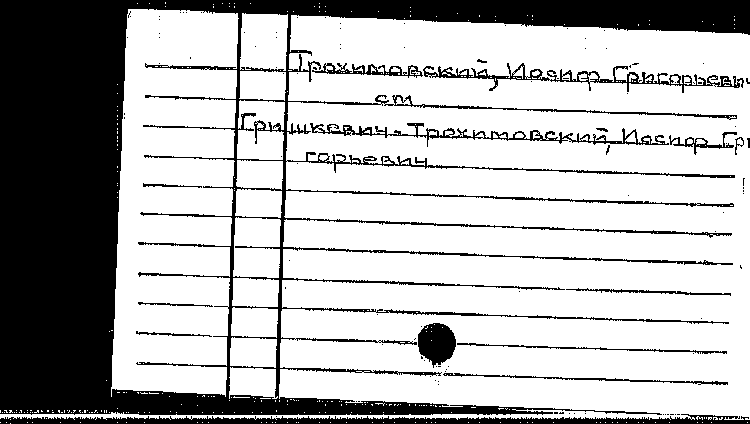 Трохимовский, Иосиф Григорьевич
см
Гришкевич-Трохимовский, Иосиф Гри
горьевич